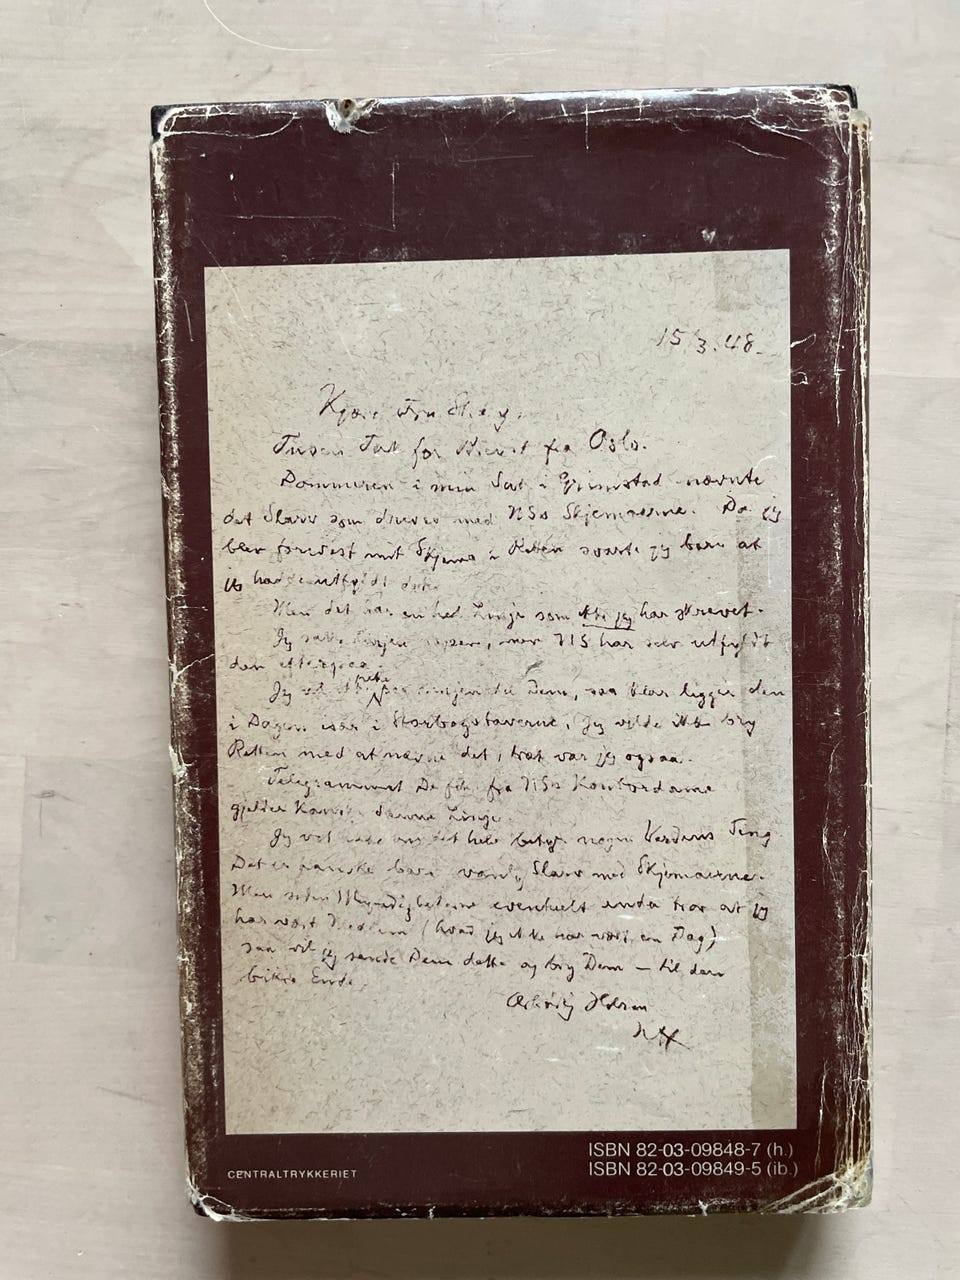 15/3.48.
Kjære Fru Stray.
Tusen Takk for Brevet fra Oslo.
Dommeren i min Sak i Grimstad nævnte
det Slarv som dreves med NSs Skjemaerne. Da jeg
blev forevist mit Skjema i Retten svarte jeg bare at
jeg hadde utfyldt det.
Men det har en hel Linje som ikke jeg har skrevet.
Jeg satte Linjen aapen, men NS har selv utfyldt
den efterpaa.
Jeg vil ikke peke Linjen til Dem, saa klar ligger den
i Dagen især i Storbogstaverne. Jeg vilde ikke bry
Retten med at nævne det, træt var jeg ogsaa.
Telegrammet De fik fra NSs Kontordame
gjelder kanske denne Linje.
Jeg vet ikke om det hele betyr nogen Verdens Ting.
Det er kanske bare vanlig Slarv med Skjemaerne.
Men siden Myndigheterne eventuelt enda tror at jeg
har vært Medlem (hvad jeg ikke har vært en Dag)
saa vil jeg sende Dem dette og bry Dem — til den
bitre Ende.
Ærbødig Hilsen
KH
CENTRALTRYKKERIET
ISBN 82-03-09848-7 (h.)
ISBN 82-03-09849-5 (ib.)